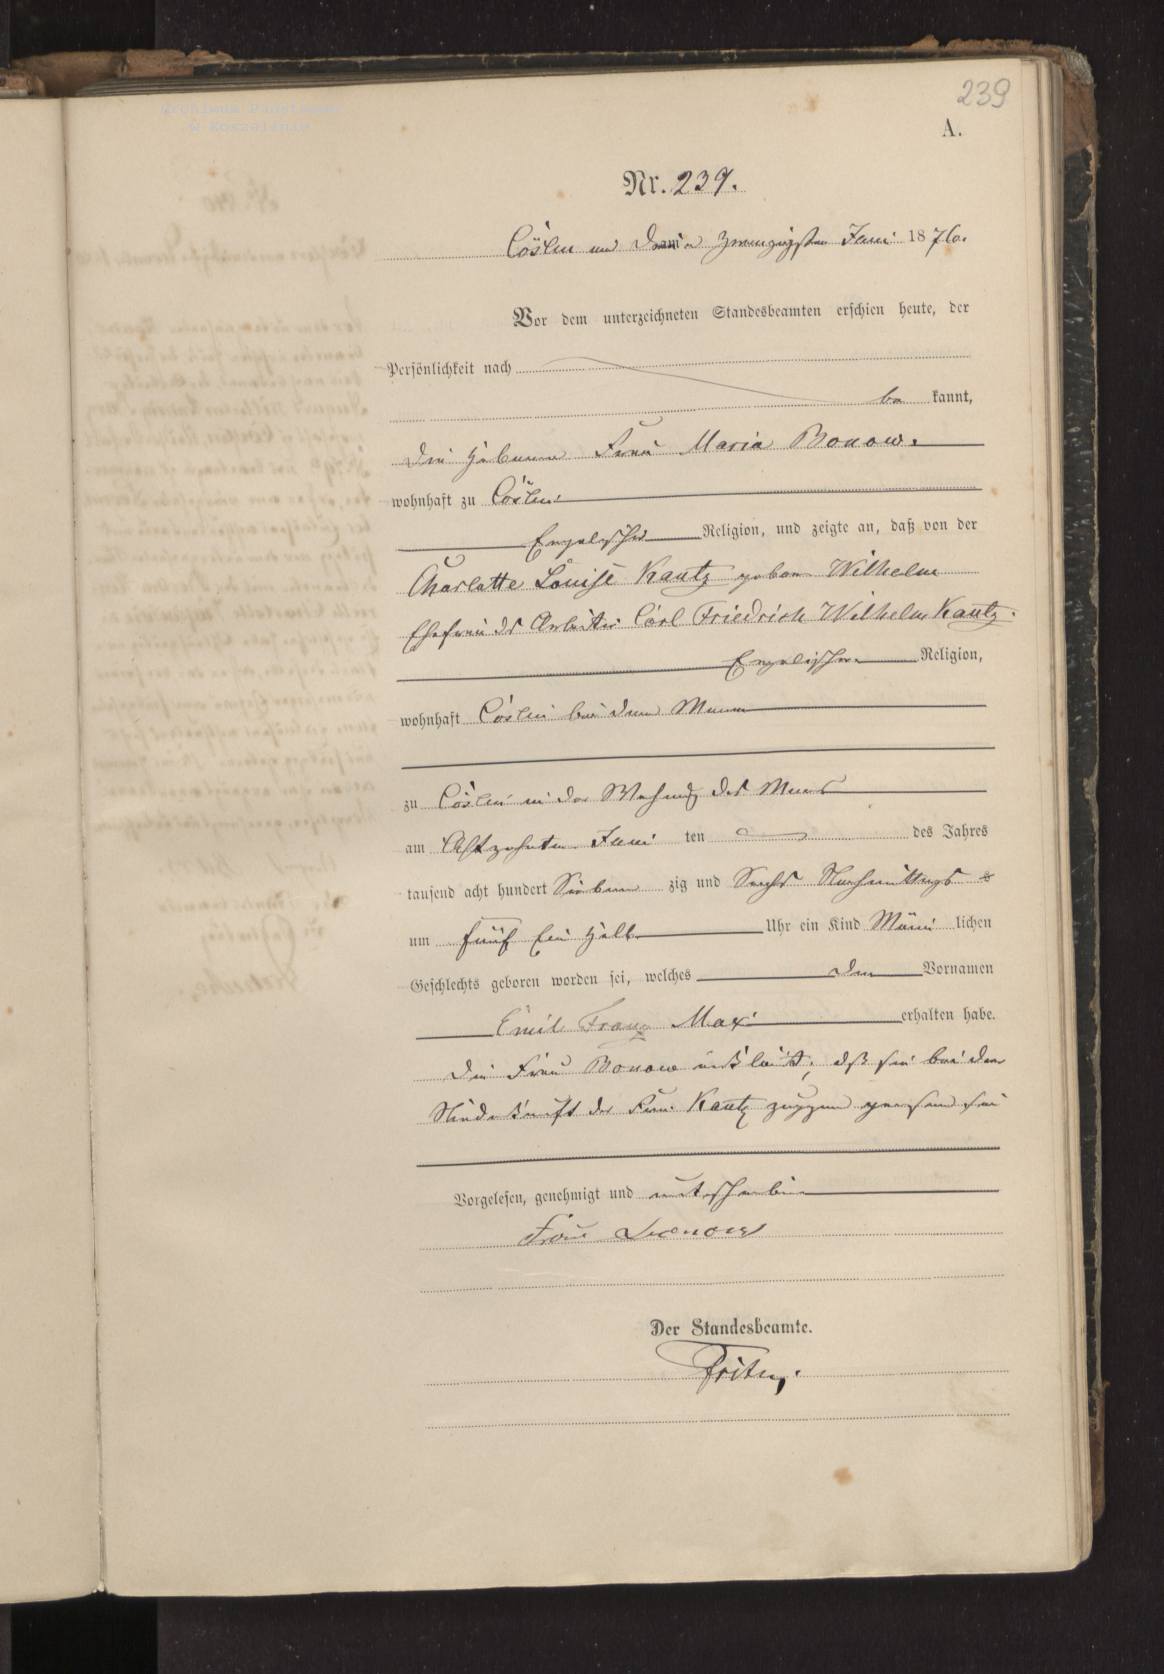 Archiwum Państwowe
w Koszalinie
239
A.
Nr. 239.
Cöslin am zwanzigsten Juni 1876.
Vor dem unterzeichneten Standesbeamten erschien heute, der
Persönlichkeit nach
be kannt,
die Hebamme Frau Maria Bonow.
wohnhaft zu Cöslin
Religion, und zeigte an, daß von der
Charlotte Louise Kautz geboren Wilhelm
Ehefrau des Arbeiter Carl Friedrich Wilhelm Kautz.
Religion,
wohnhaft Cöslin bei dem Manne
zu Cöslin in der Wohnung des Mannes
am Achtzehnten Juni ten des Jahres
tausend acht hundert Sieben zig und Sechs Nachmittags s
um fünf Ein halb Uhr ein Kind Männ lichen
Geschlechts geboren worden sei, welches den Vornamen
Emil Franz Max erhalten habe.
Die Frau Bonow erklärt, daß sie bei der
Niederkunft der Frau Kautz zugegen gewesen sei
Vorgelesen, genehmigt und unterschrieben
Frau Bonow
Der Standesbeamte.